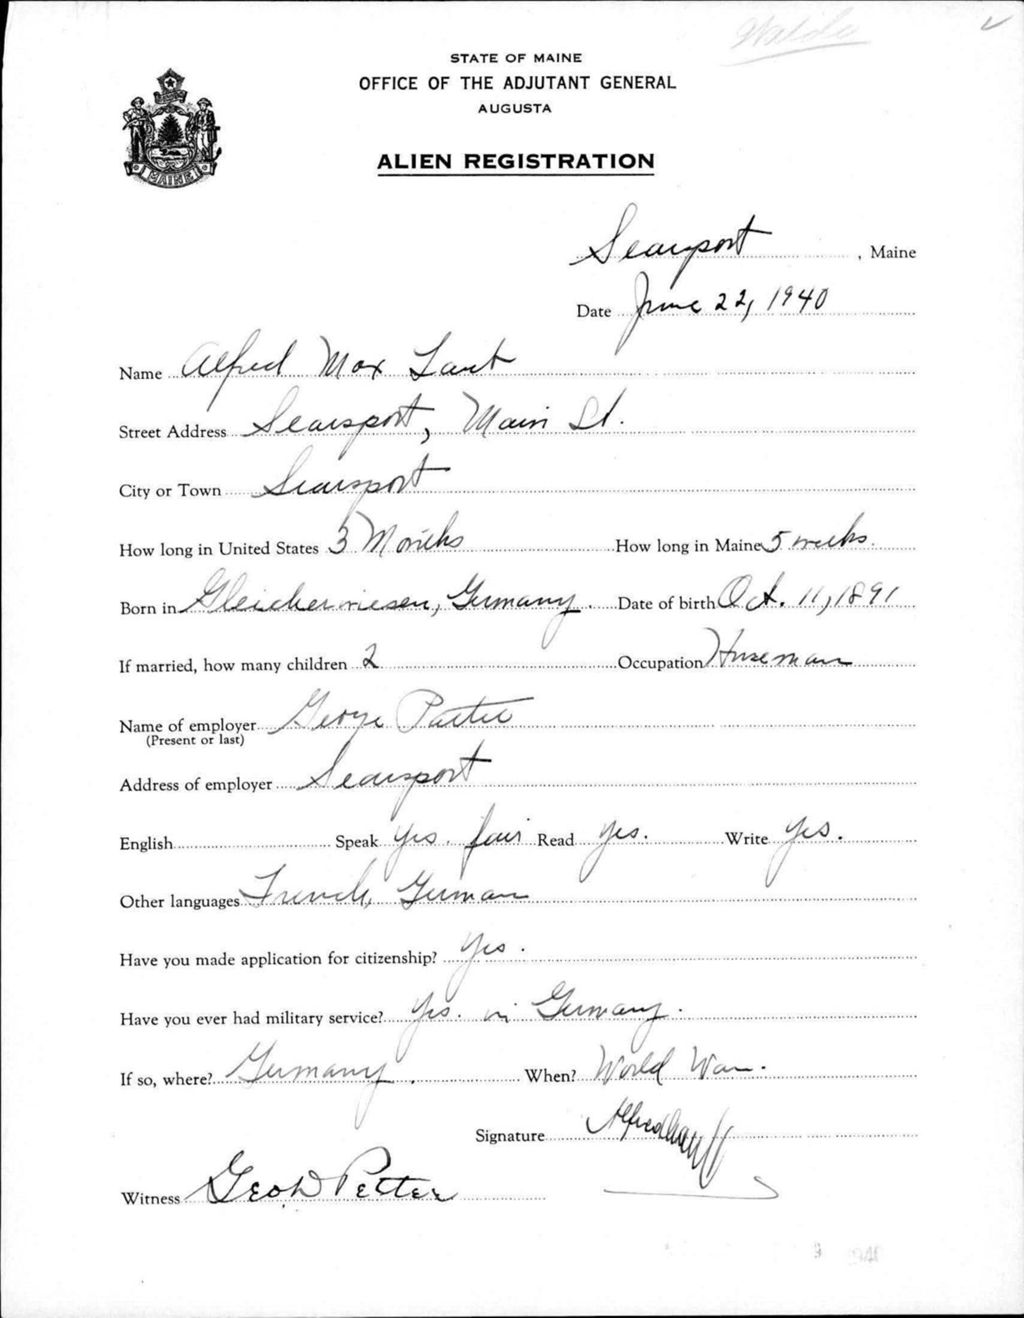 Waldo
STATE OF MAINE
OFFICE OF THE ADJUTANT GENERAL
AUGUSTA
MAINE
ALIEN REGISTRATION
Searsport, Maine
Date June 22, 1940
Name Alfred Max
Street Address Searsport, Main St.
City or Town Searsport
How long in United States 3 Months How long in Maine 5 weeks.
Born in Gleicherwiesen, Germany. Date of birth Oct. 11, 1891
If married, how many children 2 Occupation Horseman
Name of employer George
(Present or last)
Address of employer Searsport
English Speak Yes. fair Read Yes. Write Yes.
Other languages French, German
Have you made application for citizenship? Yes.
Have you ever had military service? Yes. in Germany.
If so, where? Germany. When? World War.
Signature Alfred
Witness Geo W Petter